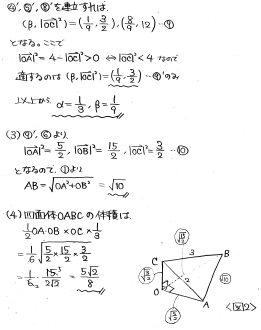 ④', ⑤', ⑧'を連立すれば
(β, |OC|²) = (1/9, 3/2), (8/9, 12) …⑨
となる。ここで
|OA|² = 4 − |OC|² > 0 ⇔ |OC|² < 4 なので
適するのは (β, |OC|²) = (1/9, 3/2) …⑨' のみ
以上から α = 1/3, β = 1/9
(3) ⑨', ⑥ より
|OA|² = 5/2, |OB|² = 15/2, |OC|² = 3/2 …⑩
となるので, ① より
AB = √(OA² + OB²) = √10
(4) 四面体OABCの体積は
1/2 OA·OB × OC × 1/3
= 1/6 √(5/2 × 15/2 × 3/2)
= 1/6 · 15/2√2 = 5√2/8
C
3
B
2
√10
O
A
<図2>